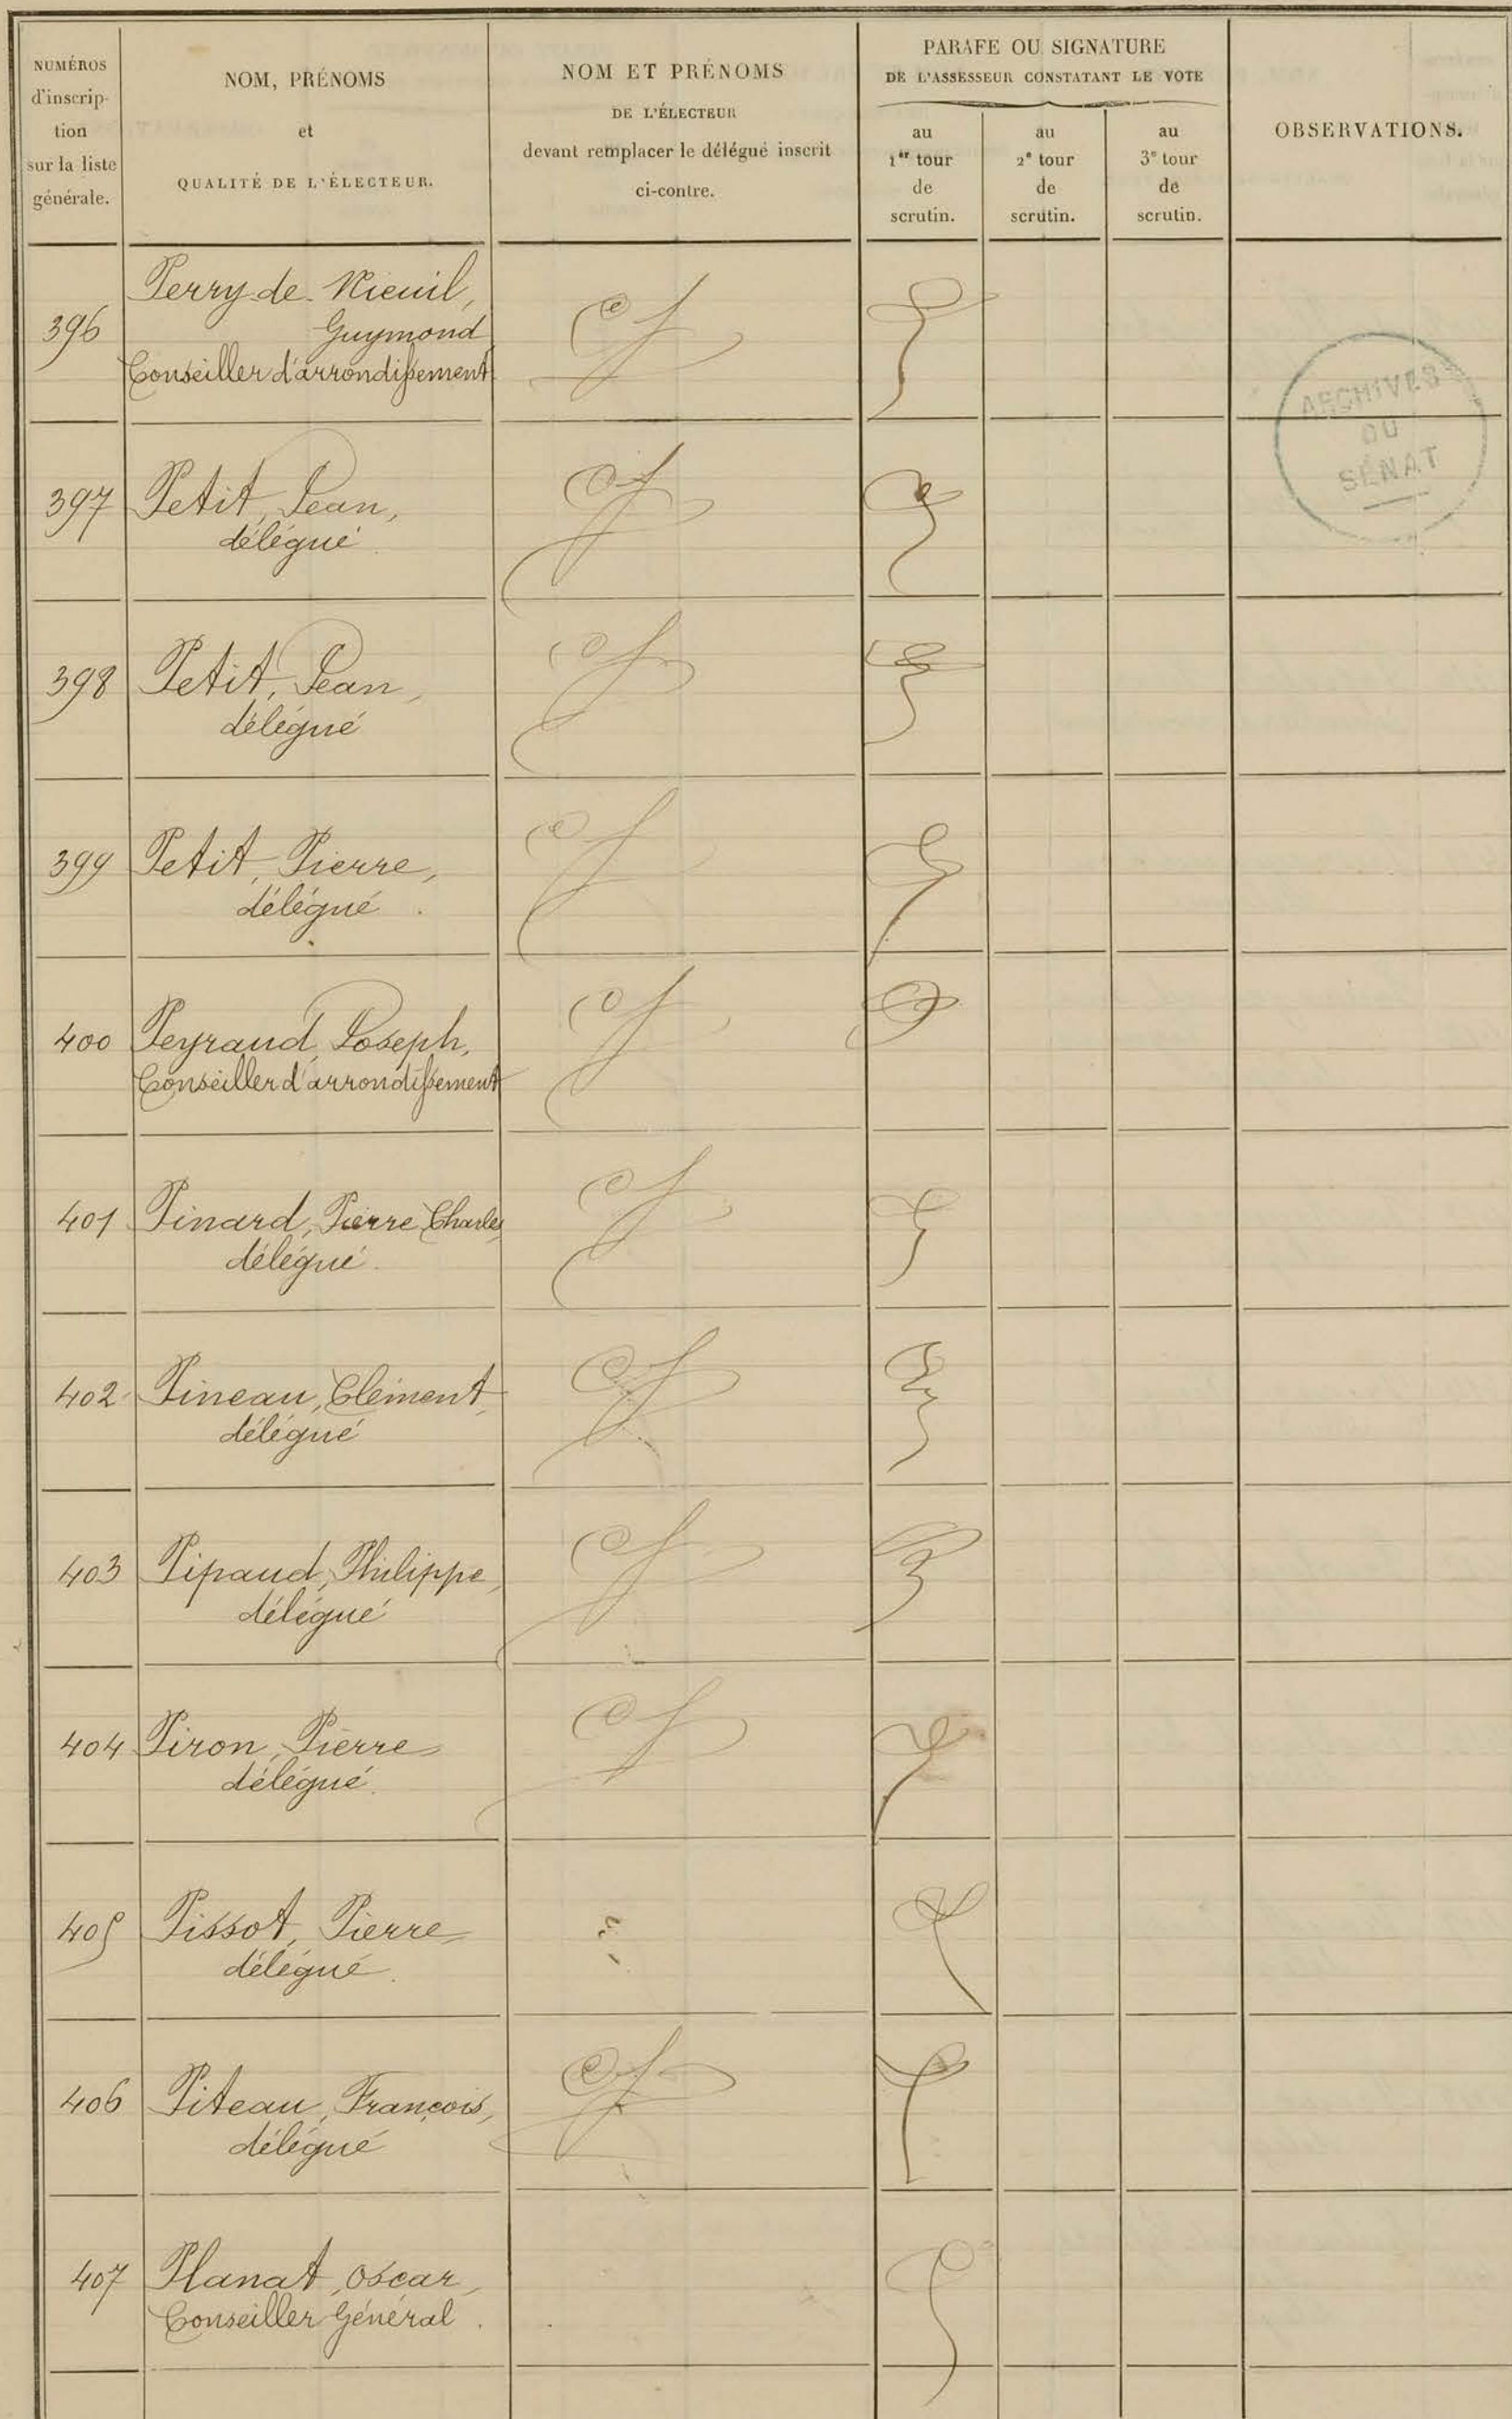 NUMÉROS
d'inscrip-
tion
sur la liste
générale.
NOM, PRÉNOMS
et
QUALITÉ DE L'ÉLECTEUR.
NOM ET PRÉNOMS
DE L'ÉLECTEUR
devant remplacer le délégué inscrit
ci-contre.
PARAFE OU SIGNATURE
DE L'ASSESSEUR CONSTATANT LE VOTE
au
1er tour
de
scrutin.
au
2e tour
de
scrutin.
au
3e tour
de
scrutin.
OBSERVATIONS.
Perry de Nieuil,
396 Guymond
Conseiller d'arrondissement
ARCHIVES
DU
SÉNAT
397 Petit, Jean,
délégué
398 Petit, Jean,
délégué
399 Petit, Pierre,
délégué.
400 Peyraud, Joseph,
Conseiller d'arrondissement
401 Pinard, Pierre Charles,
délégué.
402 Pineau, Clément,
délégué
403 Pipaud, Philippe,
délégué
404 Piron, Pierre
délégué.
405 Pissot, Pierre
délégué.
406 Piteau, François,
délégué
407 Planat, Oscar,
Conseiller Général.